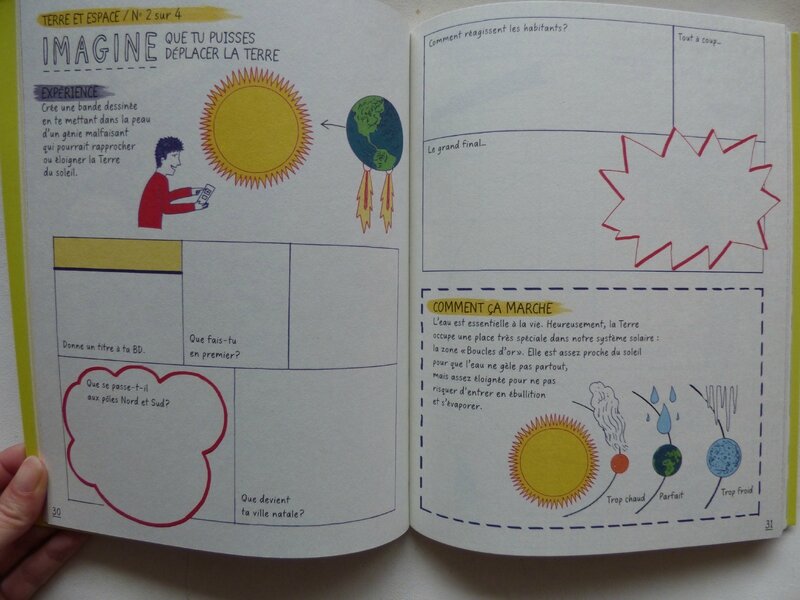 TERRE ET ESPACE / N° 2 sur 4
IMAGINE QUE TU PUISSES
DÉPLACER LA TERRE
EXPÉRIENCE
Crée une bande dessinée
en te mettant dans la peau
d'un génie malfaisant
qui pourrait rapprocher
ou éloigner la Terre
du soleil.
Donne un titre à ta BD.
Que fais-tu
en premier?
Que se passe-t-il
aux pôles Nord et Sud?
Que devient
ta ville natale?
30
Comment réagissent les habitants?
Tout à coup...
Le grand final...
COMMENT ÇA MARCHE
L'eau est essentielle à la vie. Heureusement, la Terre
occupe une place très spéciale dans notre système solaire :
la zone «Boucles d'or». Elle est assez proche du soleil
pour que l'eau ne gèle pas partout,
mais assez éloignée pour ne pas
risquer d'entrer en ébullition
et s'évaporer.
Trop chaud
Parfait
Trop froid
31